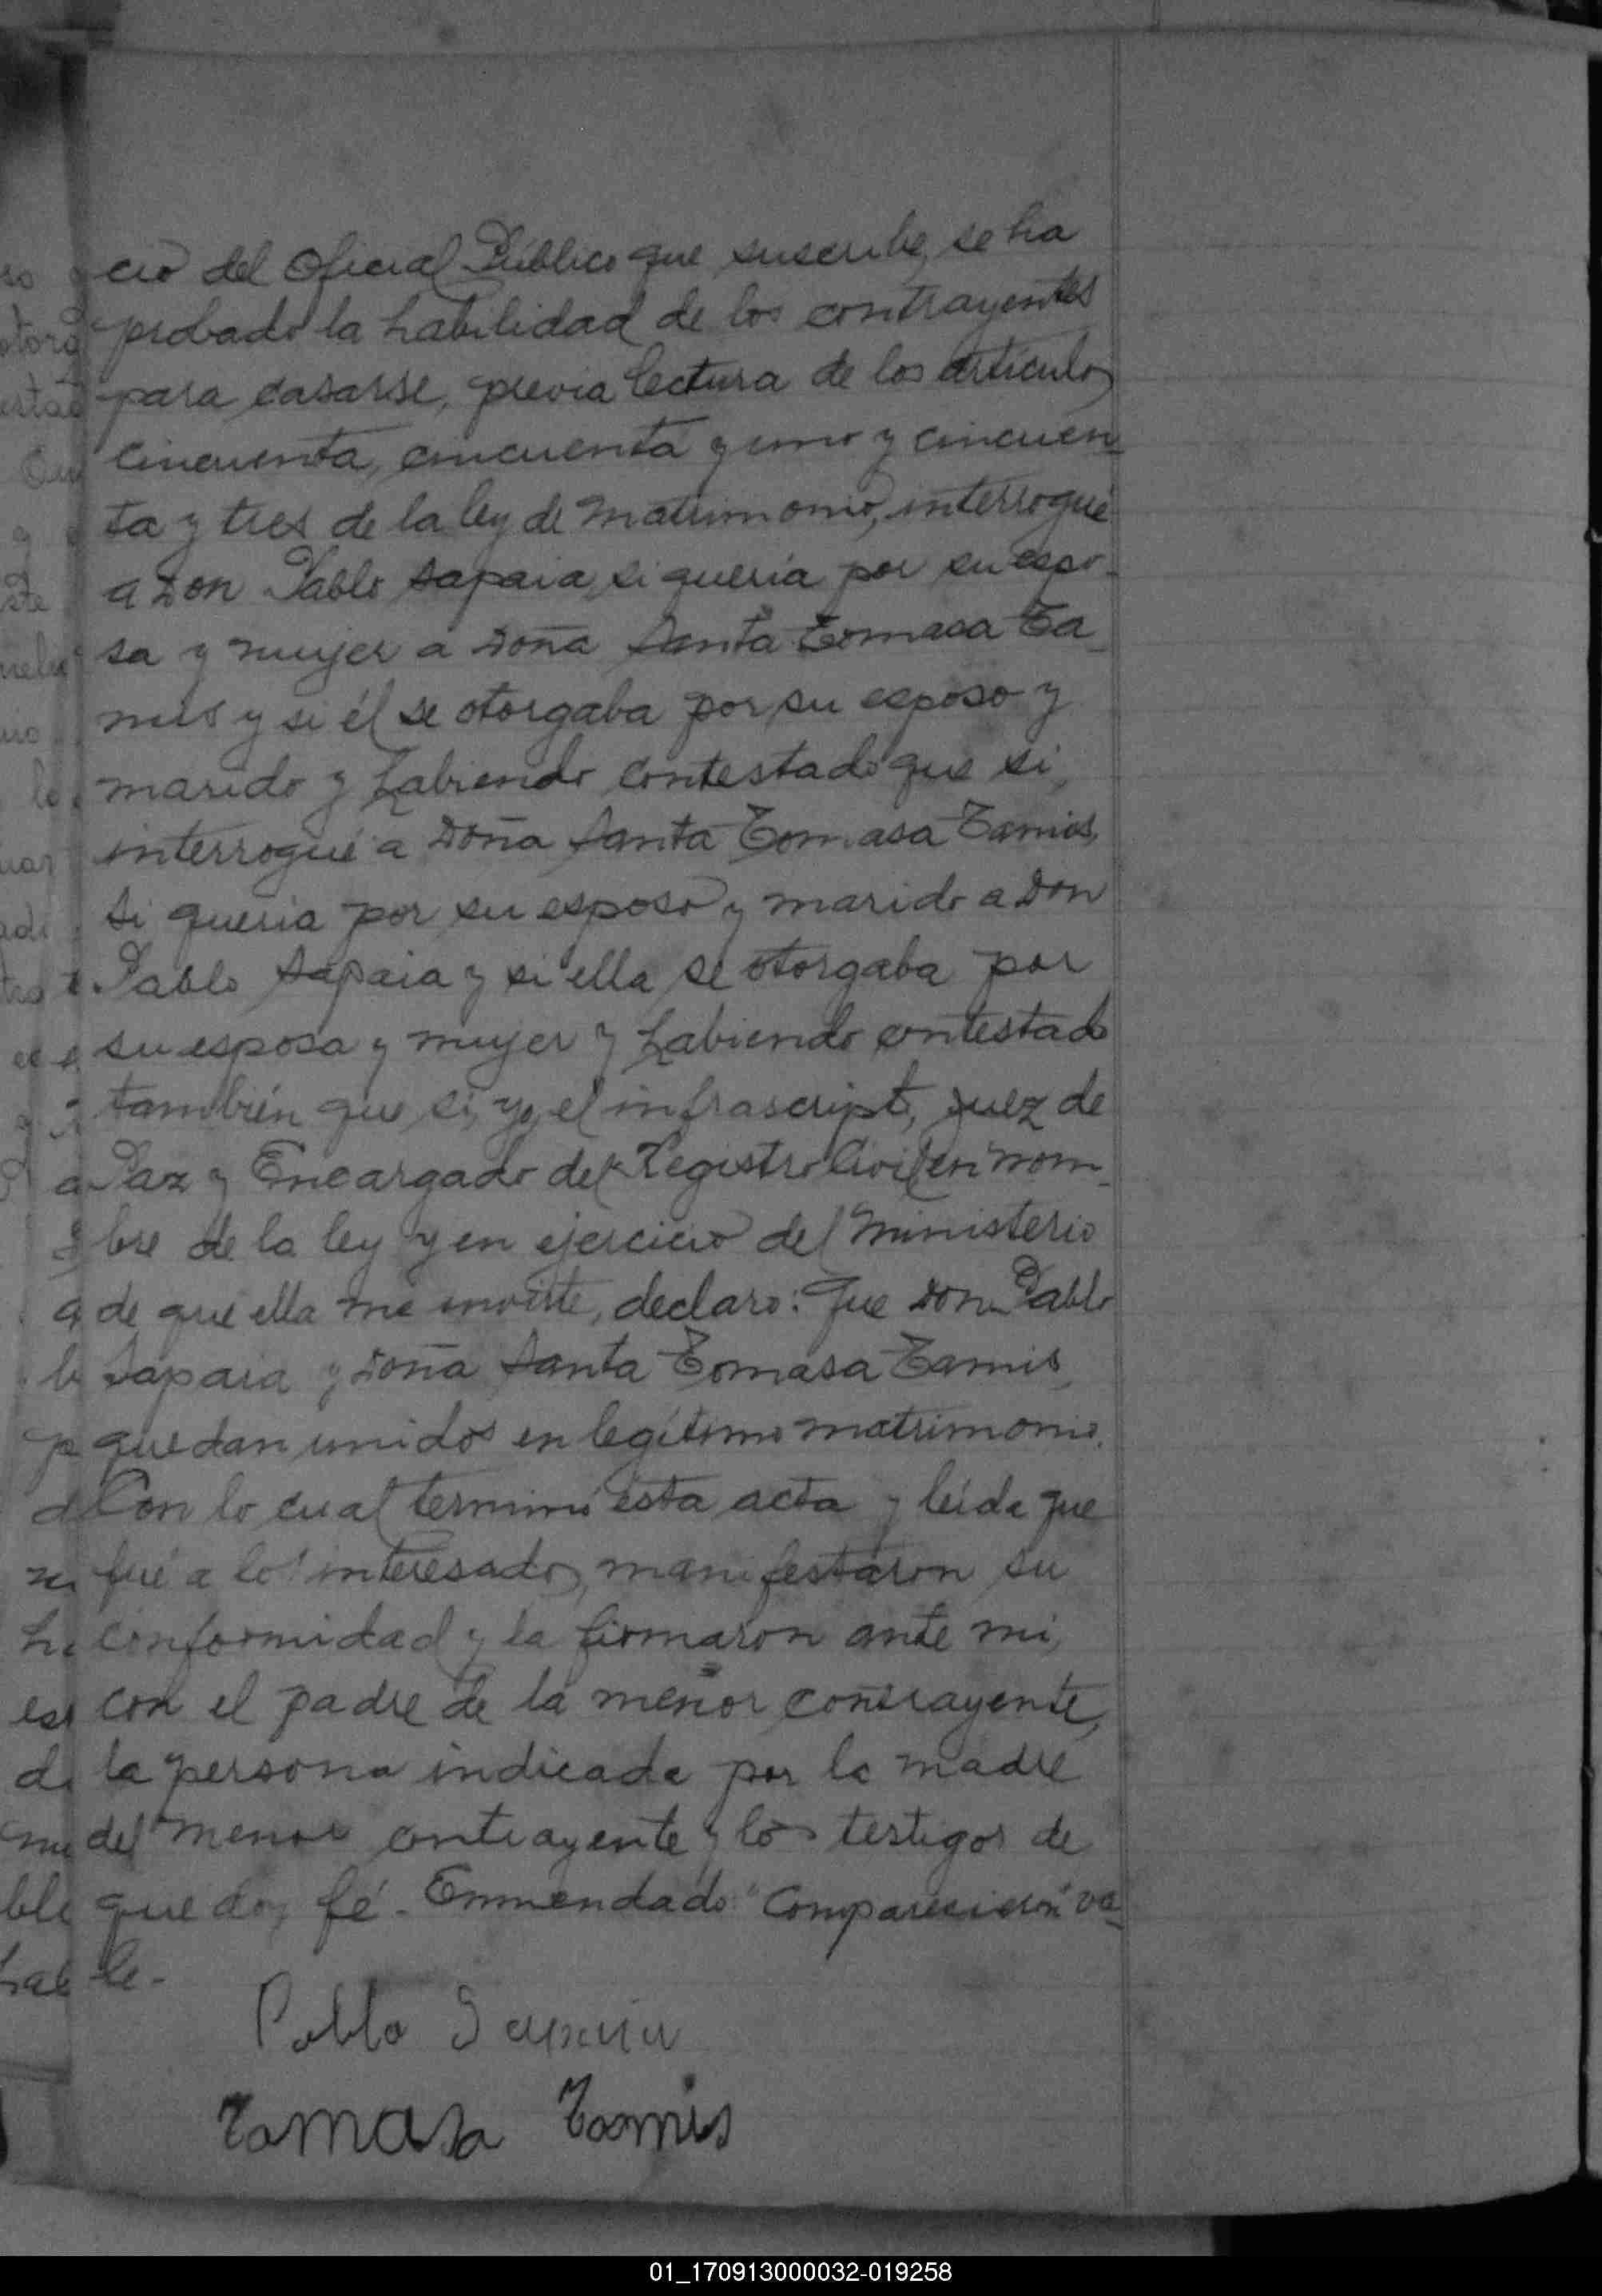 cio del Oficial Público que suscribe, se ha
probado la habilidad de los contrayentes
para casarse, previa lectura de los artículos
cincuenta, cincuenta y uno y cincuen-
ta y tres de la ley de Matrimonio, interrogué
a Don Pablo Sapaia, si quería por su espo-
sa y mujer a Doña Santa Tomasa Ta-
mis y si él se otorgaba por su esposo y
marido y habiendo contestado que si,
interrogué a Doña Santa Tomasa Tamis,
si quería por su esposo y marido a Don
Pablo Sapaia y si ella se otorgaba por
su esposa y mujer y habiendo contestado
también que si, yo, el infrascripto, Juez de
Paz y Encargado del Registro Civil en nom-
bre de la ley y en ejercicio del Ministerio
de que ella me inviste, declaro: Que Don Pablo
Sapaia y Doña Santa Tomasa Tamis,
quedan unidos en legítimo matrimonio.
Con lo cual terminó esta acta y leída que
fué a los interesados, manifestaron su
conformidad y la firmaron ante mi,
con el padre de la menor contrayente,
la persona indicada por la madre
del menor contrayente y los testigos de
que doy fé. Enmendado "Comparecieron" va-
le.
Pablo Sapaia
Tomasa Tamis
01_170913000032-019258